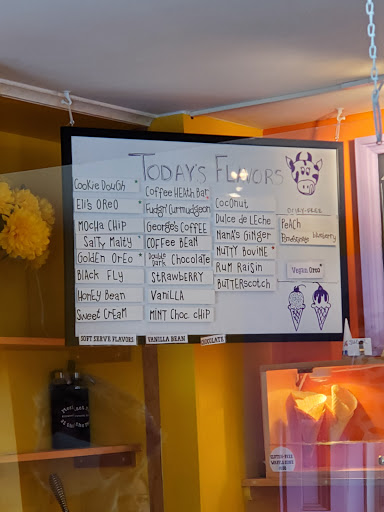 TODAY'S FLAVORS
Cookie Dough
Eli's Oreo
Mocha Chip
Salty Malty
Golden Oreo
Black Fly
Honey Bean
Sweet Cream
Coffee Heath Bar
Fudgin' Curmudgeon
George's Coffee
Coffee Bean
Double Dark Chocolate
Strawberry
Vanilla
Mint Choc Chip
Coconut
Dulce de Leche
Nana's Ginger
Nutty Bovine
Rum Raisin
Butterscotch
Dairy-Free
Peach
blueberry
Vegan Oreo
SOFT SERVE FLAVORS
VANILLA BEAN
CHOCOLATE
GLUTEN-FREE